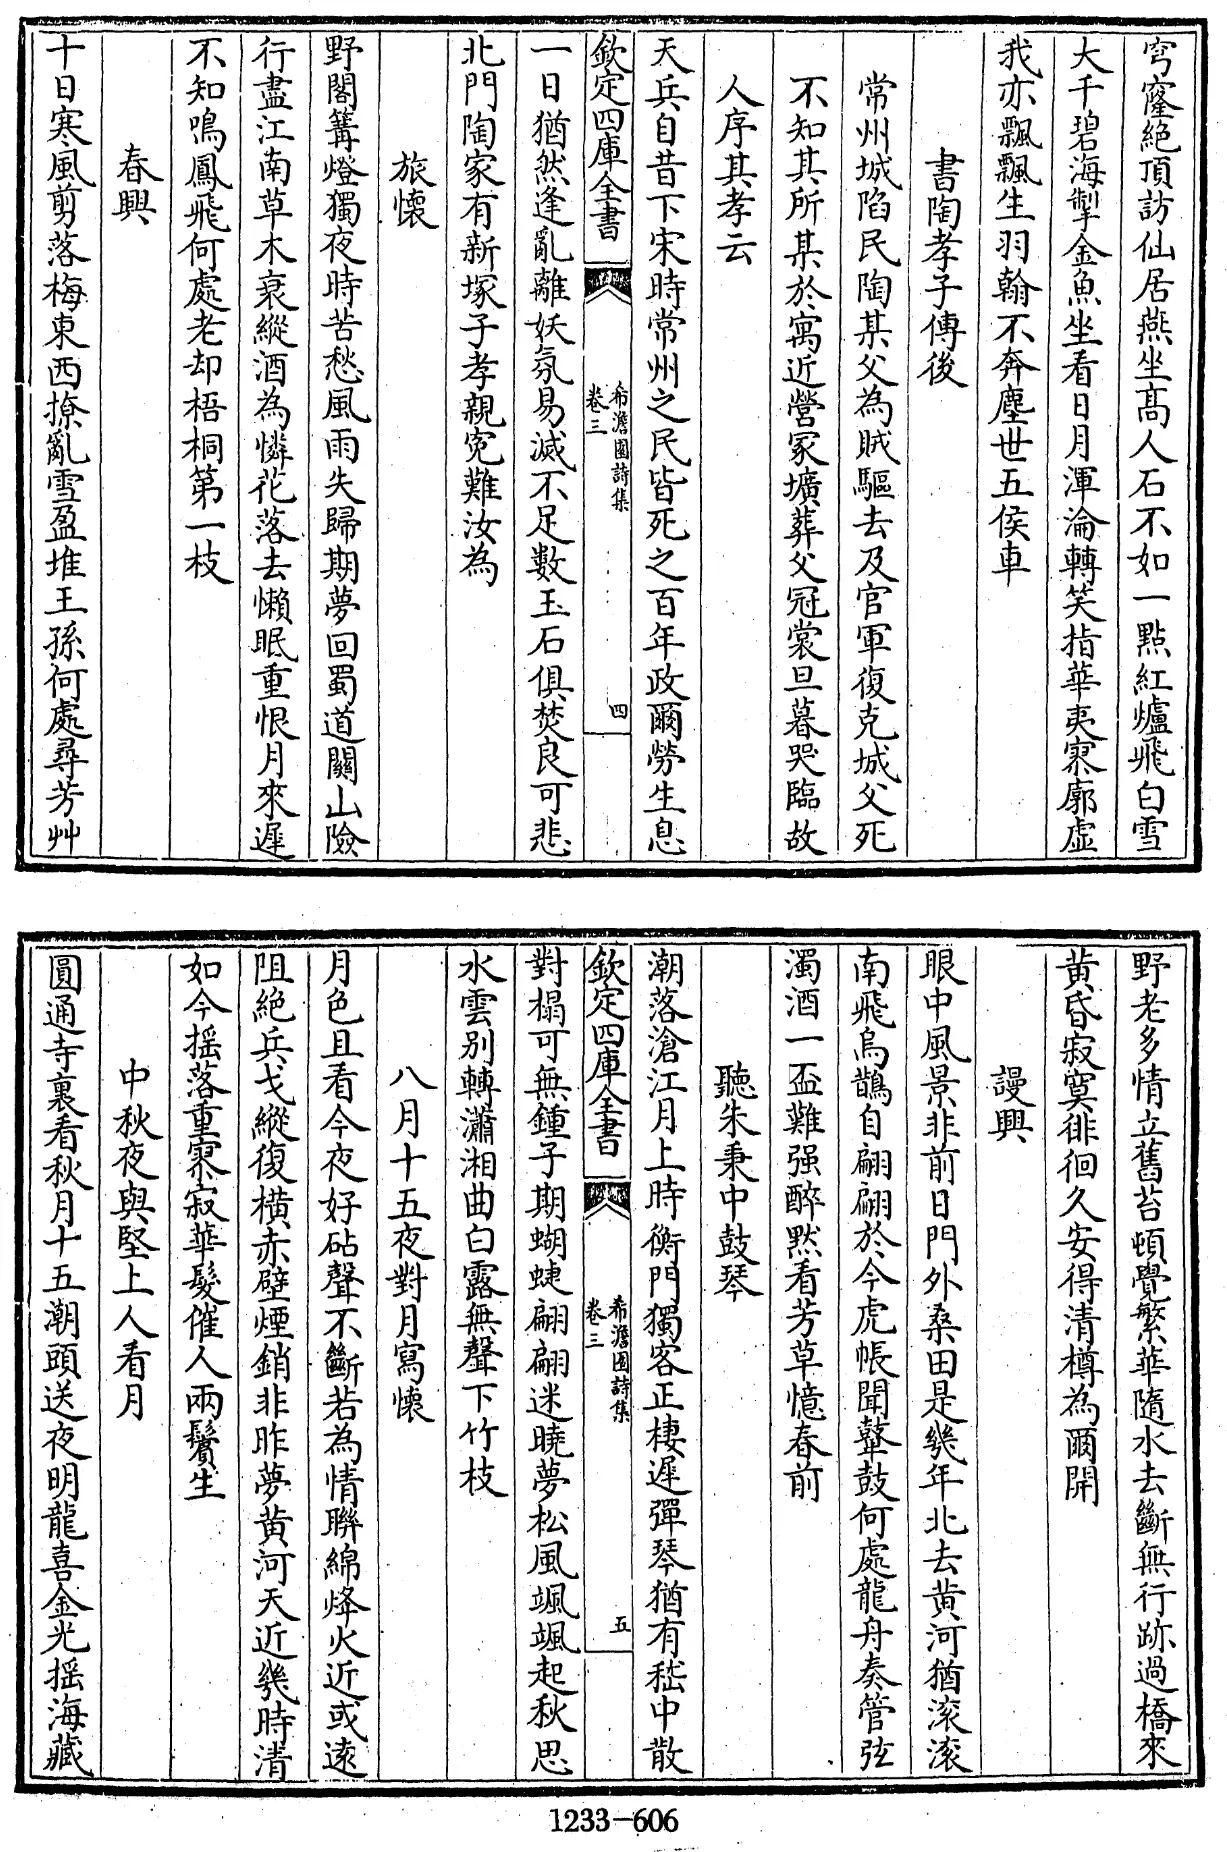 穹窿絶頂訪仙居燕坐高人石不如一點紅爐飛白雪
大千碧海掣金魚坐看日月渾淪轉笑指華夷寥廓虛
我亦飄飄生羽翰不奔塵世五侯車
書陶孝子傳後
常州城陷民陶某父為賊驅去及官軍復克城父死
不知其所某於寓近營冢壙葬父冠裳旦暮哭臨故
人序其孝云
天兵自昔下宋時常州之民皆死之百年政爾勞生息
欽定四庫全書
希澹園詩集
卷三
四
一日猶然逢亂離妖氛易滅不足數玉石俱焚良可悲
北門陶家有新塚子孝親寃難汝為
旅懷
野閣篝燈獨夜時苦愁風雨失歸期夢回蜀道關山險
行盡江南草木衰縱酒為憐花落去懶眠重恨月來遲
不知鳴鳳飛何處老却梧桐第一枝
春興
十日寒風剪落梅東西撩亂雪盈堆王孫何處尋芳艸
野老多情立舊苔頓覺繁華隨水去斷無行跡過橋來
黄昏寂寞徘徊久安得清樽為爾開
謾興
眼中風景非前日門外桑田是幾年北去黄河猶滚滚
南飛烏鵲自翩翩於今虎帳聞鼙鼓何處龍舟奏管弦
濁酒一盃難强醉黙看芳草憶春前
聽朱秉中鼓琴
潮落滄江月上時衡門獨客正棲遲彈琴猶有嵇中散
欽定四庫全書
希澹園詩集
卷三
五
對榻可無鍾子期蝴蜨翩翩迷曉夢松風颯颯起秋思
水雲別轉瀟湘曲白露無聲下竹枝
八月十五夜對月寫懷
月色且看今夜好砧聲不斷若為情聯綿烽火近或遠
阻絶兵戈縱復橫赤壁煙銷非昨夢黄河天近幾時清
如今摇落重寥寂華髮催人兩鬢生
中秋夜與堅上人看月
圓通寺裏看秋月十五潮頭送夜明龍喜金光摇海藏
1233-606